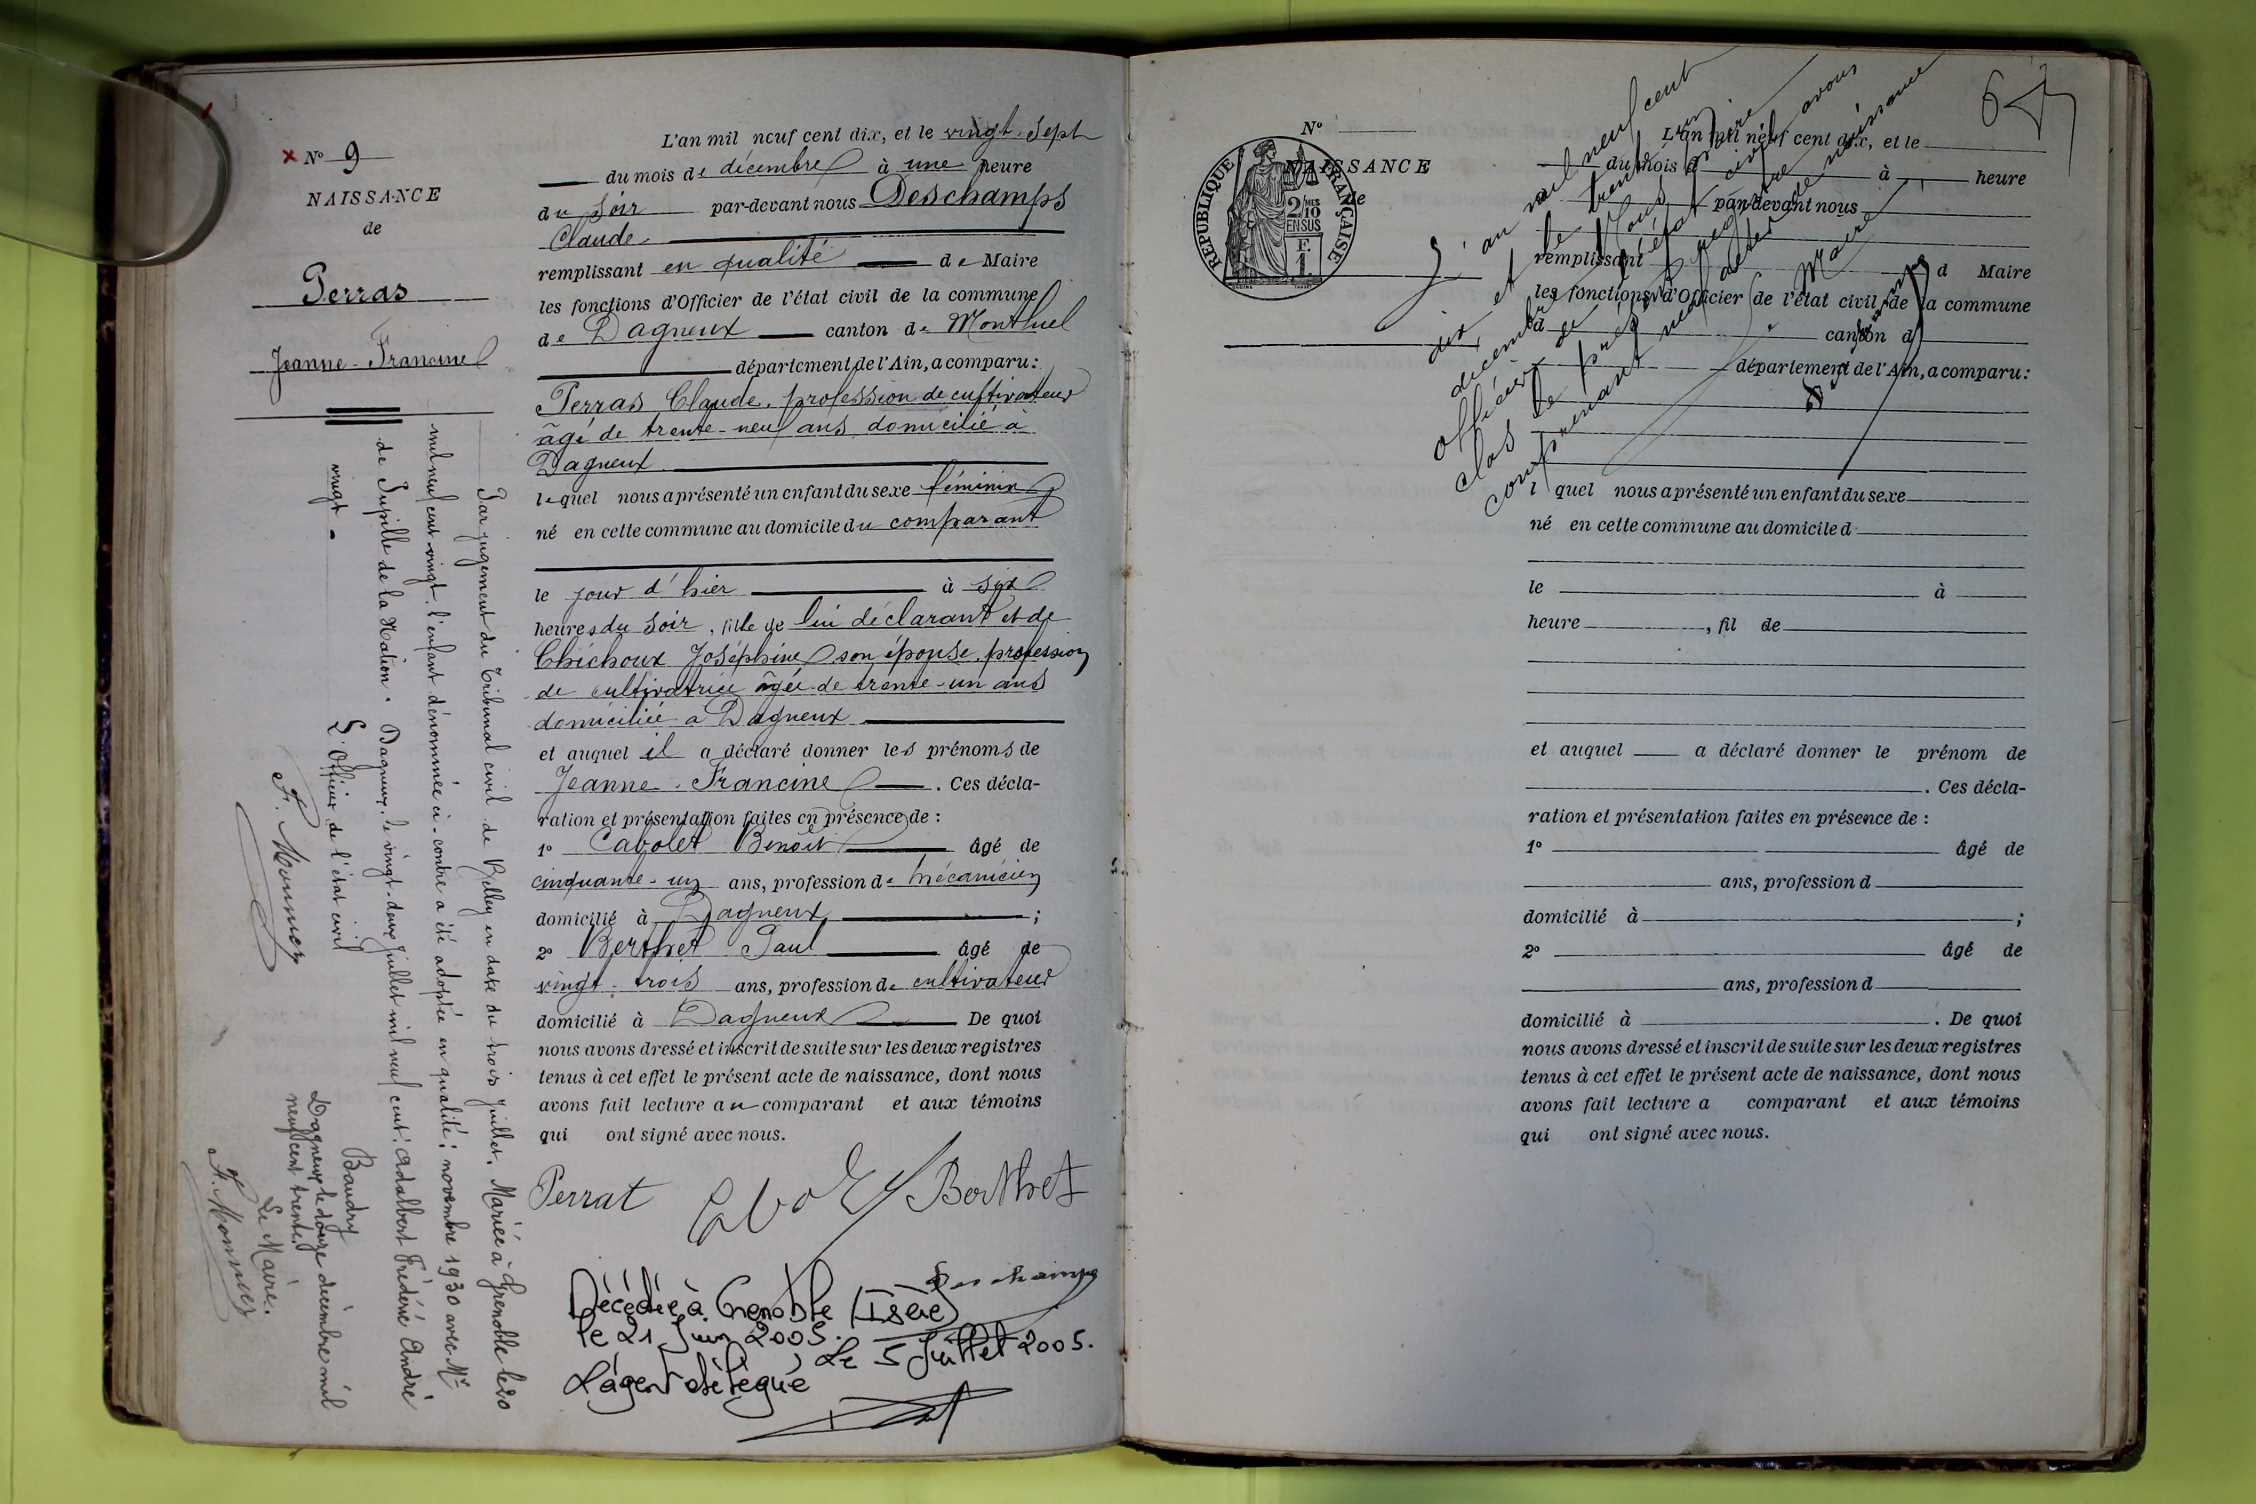 N° 9
NAISSANCE
de
Perras
Jeanne-Francine
L'an mil neuf cent dix, et le vingt-sept
du mois de décembre à une heure
du soir par-devant nous Deschamps
Claude
remplissant en qualité de Maire
les fonctions d'Officier de l'état civil de la commune
de Dagneux canton de Montluel
département de l'Ain, a comparu :
Perras Claude, profession de cultivateur
âgé de trente-neuf ans domicilié à
Dagneux
lequel nous a présenté un enfant du sexe féminin
né en cette commune au domicile du comparant
le jour d'hier à six
heures du soir, fille de lui déclarant et de
Chichoux Joséphine son épouse, profession
de cultivatrice âgée de trente-un ans
domiciliée à Dagneux
et auquel il a déclaré donner les prénoms de
Jeanne-Francine . Ces décla-
ration et présentation faites en présence de :
1° Cabolet Benoit âgé de
cinquante-un ans, profession de mécanicien
domicilié à Dagneux ;
2° Berthet Paul âgé de
vingt-trois ans, profession de cultivateur
domicilié à Dagneux De quoi
nous avons dressé et inscrit de suite sur les deux registres
tenus à cet effet le présent acte de naissance, dont nous
avons fait lecture au comparant et aux témoins
qui ont signé avec nous.
Perrat Berthet
Deschamps
Décédée à Grenoble (Isère)
le 21 Juin 2005.
Le 5 Juillet 2005.
L'agent délégué
Par jugement du Tribunal civil de Belley en date du trois juillet
mil neuf cent vingt, l'enfant dénommée ci-contre a été adoptée en qualité
de Pupille de la Nation. Dagneux, le vingt-deux juillet mil neuf cent
vingt.
L'Officier de l'état civil
F. Monnier
Mariée à Grenoble le 20
novembre 1930 avec Mr
Adalbert Frédéric André
Baudry
Dagneux, le douze décembre mil
neuf cent trente.
Le Maire.
F. Monnier
N°
NAISSANCE
de
RÉPUBLIQUE FRANÇAISE
2/10 MES
EN SUS
F.
1
L'an mil neuf cent dix, et le
du mois d à heure
par-devant nous
remplissant d Maire
les fonctions d'Officier de l'état civil de la commune
d canton d
département de l'Ain, a comparu :
l quel nous a présenté un enfant du sexe
né en cette commune au domicile d
le à
heure , fil de
et auquel a déclaré donner le prénom de
. Ces décla-
ration et présentation faites en présence de :
1° âgé de
ans, profession d
domicilié à ;
2° âgé de
ans, profession d
domicilié à . De quoi
nous avons dressé et inscrit de suite sur les deux registres
tenus à cet effet le présent acte de naissance, dont nous
avons fait lecture a comparant et aux témoins
qui ont signé avec nous.
L'an mil neuf cent
dix et le trente un
décembre Nous Maire
officier de l'état civil avons
clos le présent registre
comprenant neuf actes de naissance
Maire
Deschamps